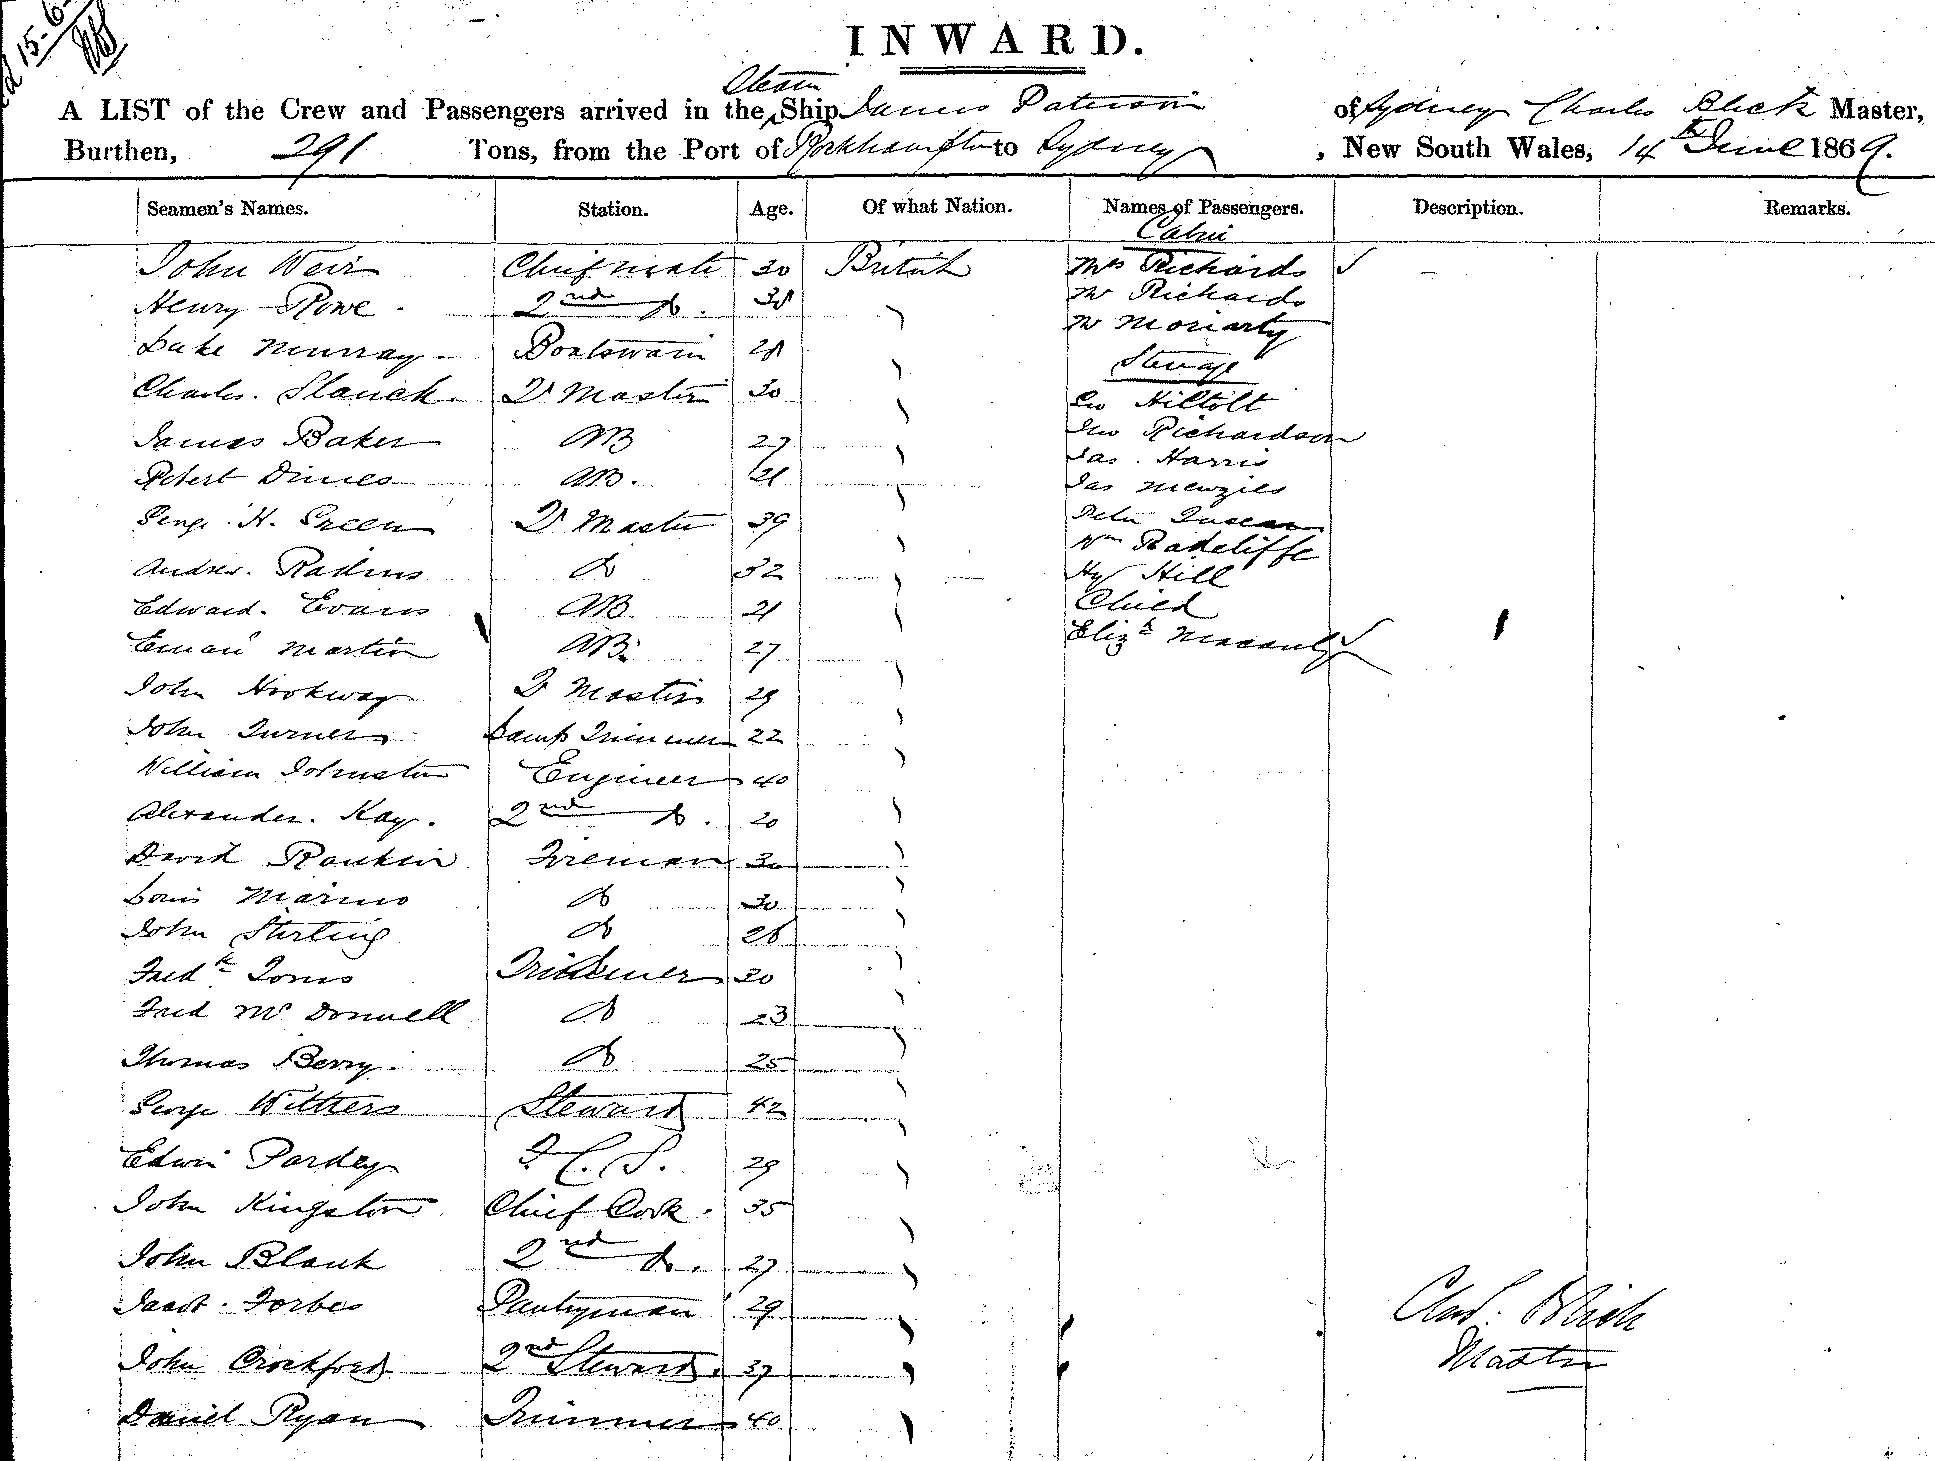 15-6-
INWARD.
Steam
A LIST of the Crew and Passengers arrived in the Ship James Paterson of Sydney Charles Master,
Burthen, 291 Tons, from the Port of Rockhampton to Sydney, New South Wales, 14th June 1869.
Seamen's Names. Station. Age. Of what Nation. Names of Passengers. Description. Remarks.
Cabin
John Weir Chief mate 30 British Mrs Richards
Henry Rowe 2nd Do. Mr Richards
Mr Moriarty
Luke Murray Boatswain 28
Steerage
Charles. Slauck. Q Master 30
James Baker AB 27 Jno Richardson
Jas. Harris
Robert Dimes AB. 21 Jas Menzies
George H. Green Q Master 39 Peter
Wm Radcliffe
Andrew. Do 32 Hy Hill
Edward. Evans AB 21 Child
Martin AB. 27 Elizth
John Hookway Q Master 29
John Turner Lamp Trimmer 22
William Johnston Engineer 40
Alexander. Kay. 2nd Do. 20
David Rankin Fireman 30
Louis Do 30
John Stirling Do 26
Fredk Trimmer 30
Fred McDonnell Do 23
Thomas Berry. Do 25
George Withers Steward 42
Edwin Pardey F. C. S. 29
John Kingston Chief Cook. 35
John Blank 2nd Do. 27
Jacob. Forbes Pantryman 29
Chas.
John Crockford 2nd Steward. 37 Master
Daniel Ryan Trimmer 40